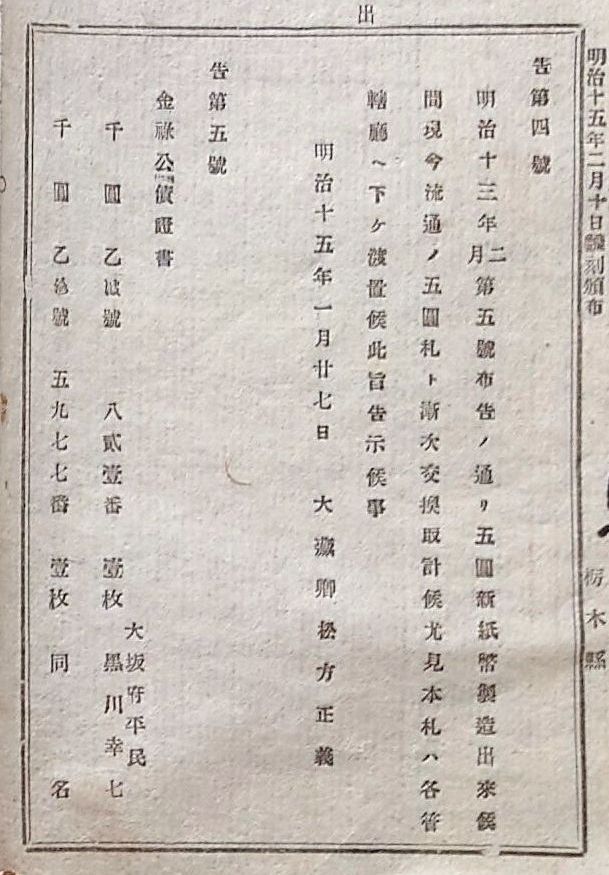 出
明治十五年二月十日飜刻頒布
栃木縣
告第四號
明治十三年二月第五號布告ノ通リ五圓新紙幣製造出來候
間現今流通ノ五圓札ト漸次交換取計候尤見本札ハ各管
轄廳ヘ下ケ渡置候此旨告示候事
明治十五年一月廿七日 大藏卿松方正義
告第五號
金祿公債證書
千圓 乙 號 八貳壹番 壹枚 大坂府平民 黑川幸七
千圓 乙 號 五九七七番 壹枚 同名